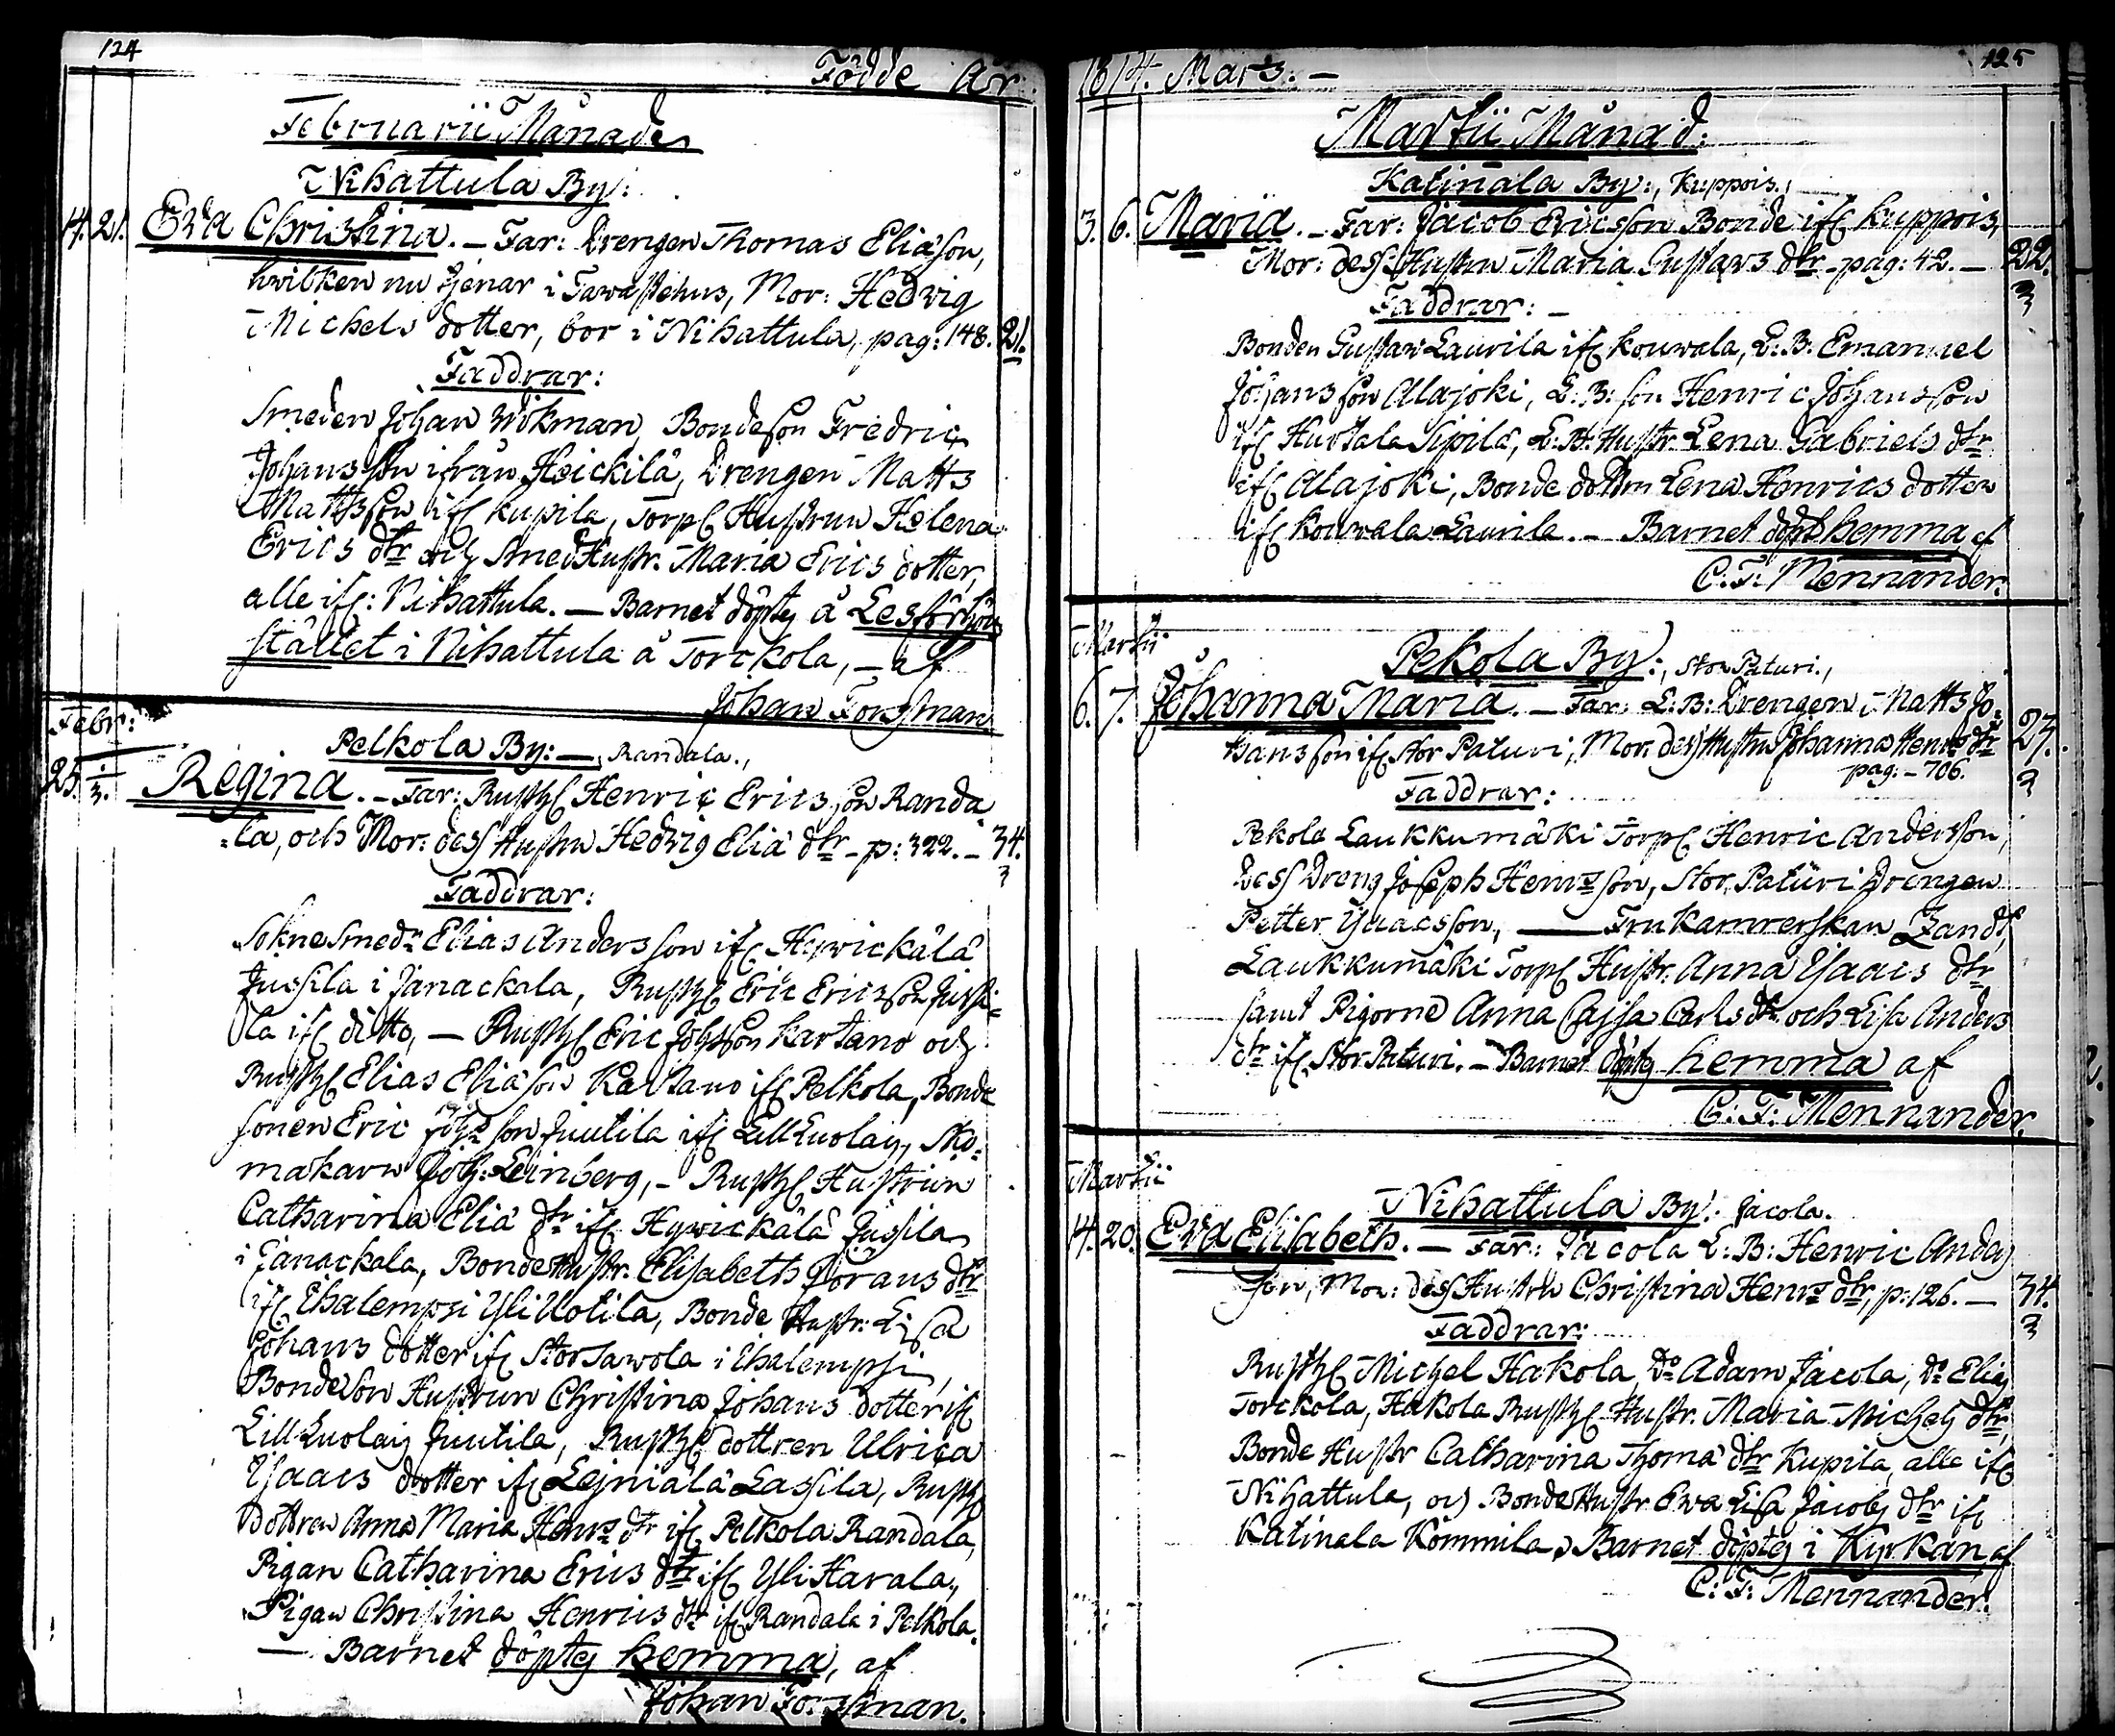 124
Födde År
Februarii Månader
Nihattula By:
14. 21. Eva Christina. – Far: Drengen Thomas Eliæson,
hvilken nu tjenar i Tawastehus, Mor: Hedvig
Michels dotter, bor i Nihattula, pag: 148. 21.
Faddrar:
Smeden Johan Wikman, Bondeson Fredric
Johansson ifrån Heickilä, Drengen Matts
Mattsson if: Kupila, Torp: Hustrun Helena
Erics dtr och Smed Hustr. Maria Erics dotter,
alle if: Nihattula. — Barnet döptes å Läsförhörs
stället i Nihattula å Torckola, – af
Johan Forssman
Febr:
Pelkola By: — Randala.,
25. 1/3. Regina. – Far: Rusth: Henric Ericsson Randa
=la, och Mor: dess Hustru Hedvig Eliæ dtr – p: 322. – 34.
3
Faddrar:
Sokne Smedn Elias Andersson if: Hyvickälä
Jussila i Janackala, Rusth: Eric Ericsson Jussi=
la if: ditto, — Rusth: Eric Johsson Kartano och
Rusth: Elias Eliæson Kartano if: Pelkola, Bonde
sonen Eric Johs son Juutila if: Lill Luolais, Sko=
makarn Joh: Leinberg, – Rusth: Hustrun
Catharina Eliæ dtr if: Hyvickälä Jussila
i Janackala, Bonde Hustr. Elisabeth Görans dtr
if: Ihalempsi Yli Uotila, Bonde Hustr: Lisa
Johans dotter if: Stor Sawola i Ihalempsi,
Bondeson Hustrun Christina Johans dotter if:
Lill Luolais Juutila, Rusth: dottren Ulrica
Isaacs dotter if: Leiniälä Lassila, Rusth:
dottren Anna Maria Henrs dtr if: Pelkola Randala,
Pigan Catharina Erics dtr if: Yli Harala,
Pigan Christina Henrics dtr if: Randala i Pelkola.
— Barnet döptes hemma, af
Johan Forssman.
1814. Mars: –
125
Martii Månad:
Katinala By:, Kuppois.,
3. 6. Maria. – Far: Jacob Ericsson Bonde if: Kuppois,
Mor: dess Hustru Maria Gustavs dtr – pag: 42. — 22.
3
Faddrar: –
Bonden Gustav Laurila if: Kouvala, L: B: Emanuel
Johansson Alajoki, L: B: son Henric Johansson
if: Hurtala Sipilä, L: B: Hustr. Lena Gabriels dtr
if: Alajoki, Bonde dottern Lena Henrics dotter
if: Kouvala Laurila. – Barnet döpt hemma af
C: F: Mennander.
Martii
Pekola By:, Stor Paturi.,
6. 7. Johanna Maria. – Far: L: B: Drengen Matts Jo=
hansson if: Stor Paturi, Mor: dess Hustru Johanna Henrs dtr 27.
pag: – 706. 3
Faddrar:
Pekola Laukkumäki Torp: Henric Andersson,
dess Dreng Joseph Henrs son, Stor Paturi Drengen
Petter Isaacsson, — Fru Kamrerskan Zandt,
Laukkumäki Torp: Hustr. Anna Isaacs dtr
samt Pigorne Anna Cajsa Carls dtr och Lisa Anders
dtr if: Stor Paturi. – Barnet döptes hemma af
C: F: Mennander.
Martii
Nihattula By: Jacola.
14. 20. Eva Elisabeth. — Far: Jacola L: B: Henric Anders
son, Mor: dess Hustru Christina Henrs dtr, p: 126. — 34.
3
Faddrar:
Rusth: Michel Hakola, Do Adam Jacola, do Elias
Torckola, Hakola Rusth: Hustr. Maria Michels dtr,
Bonde Hustr Catharina Thomæ dtr Kupila, alle if:
Nihattula, och Bonde Hustr. Ewa Lisa Jacobs dtr if:
Katinala Kömmilä, Barnet döptes i Kyrkan af
C: F: Mennander.